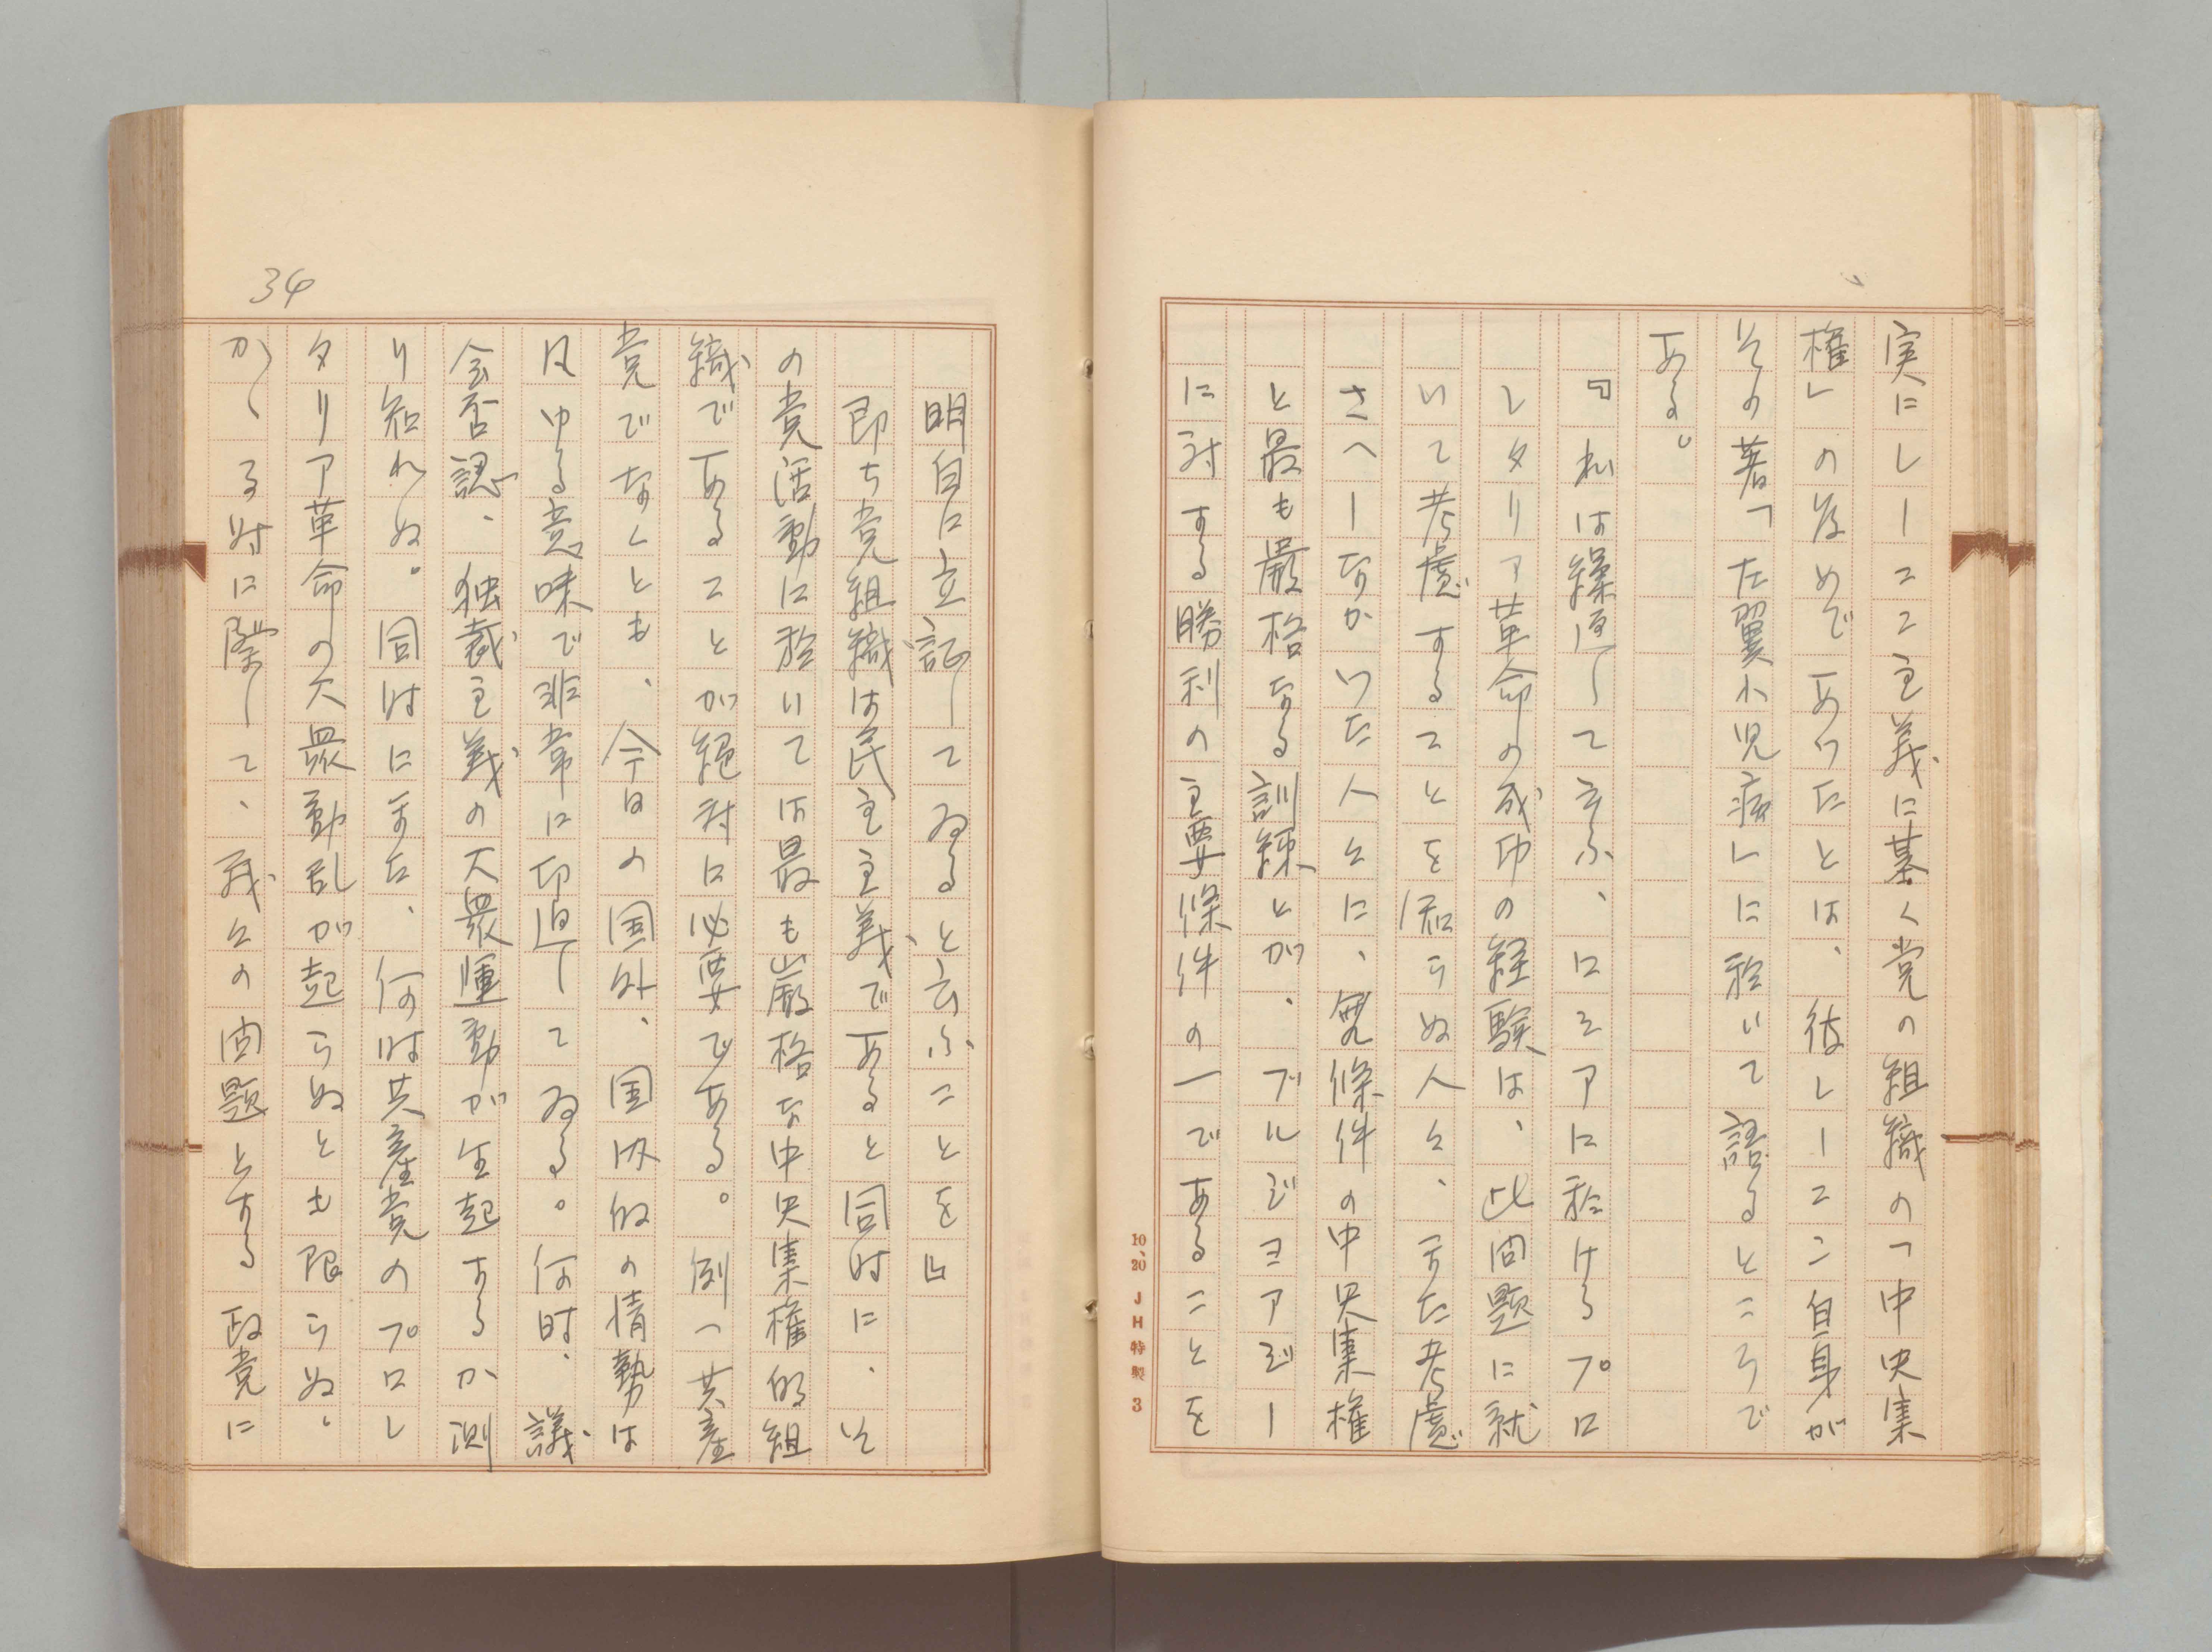 実にレーニニ主義に基く党の組織の「中央集
権」の為めであつたとは、彼レーニン自身が
その著「左翼小児病」に於いて語るところで
ある。
『私は繰返して云ふ、ロシアに於けるプロ
レタリア革命の成功の経験は、此問題に就
いて考慮することを知らぬ人々、また考慮
さへしなかつた人々に、無條件の中央集権
と最も厳格なる訓練とが、ブルジヨアジー
に対する勝利の主要條件の一であることを
10、20 JH特製 3
34
明白に立証してゐると云ふことを』
即ち党組織は民主主義であると同時に、そ
の党活動に於いては最も厳格な中央集権的組
織であることが絶対に必要である。例へ共産
党でなくとも、今日の国外、国内的の情勢は
凡ゆる意味で非常に切迫してゐる。何時、議
会否認、独裁主義の大衆運動が生起するか測
り知れぬ。同時にまた、何時共産党のプロレ
タリア革命の大衆動乱が起らぬとも限らぬ。
かゝる時に際して、我々の問題とする政党に